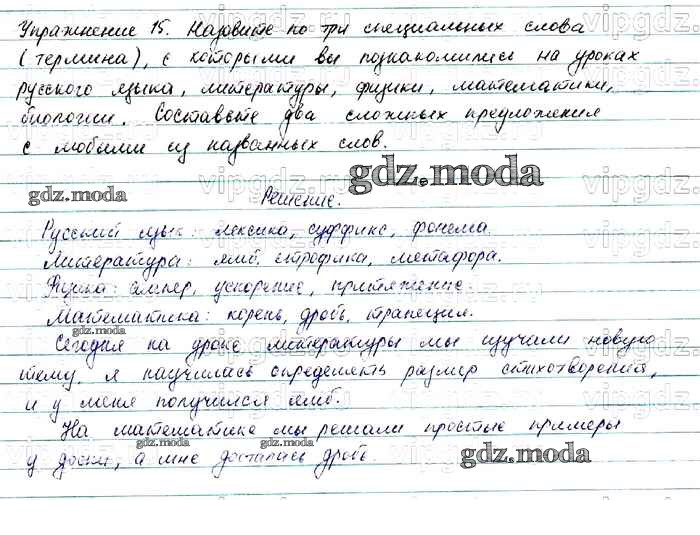 Упражнение 15. Назовите по три специальных слова
(термина), с которыми вы познакомились на уроках
русского языка, литературы, физики, математики,
биологии. Составьте два сложных предложения
с любыми из названных слов.
gdz.moda
gdz.moda
Решение.
Русский язык: лексика, суффикс, фонема.
Литература: ямб, строфика, метафора.
Физика: ампер, ускорение, притяжение.
Математика: корень, дробь, трапеция.
gdz.moda
Сегодня на уроке литературы мы изучали новую
тему, я научилась определять размер стихотворения,
и у меня получился ямб.
На математике мы решали простые примеры
gdz.moda gdz.moda
у доски, а мне досталась дробь.
gdz.moda